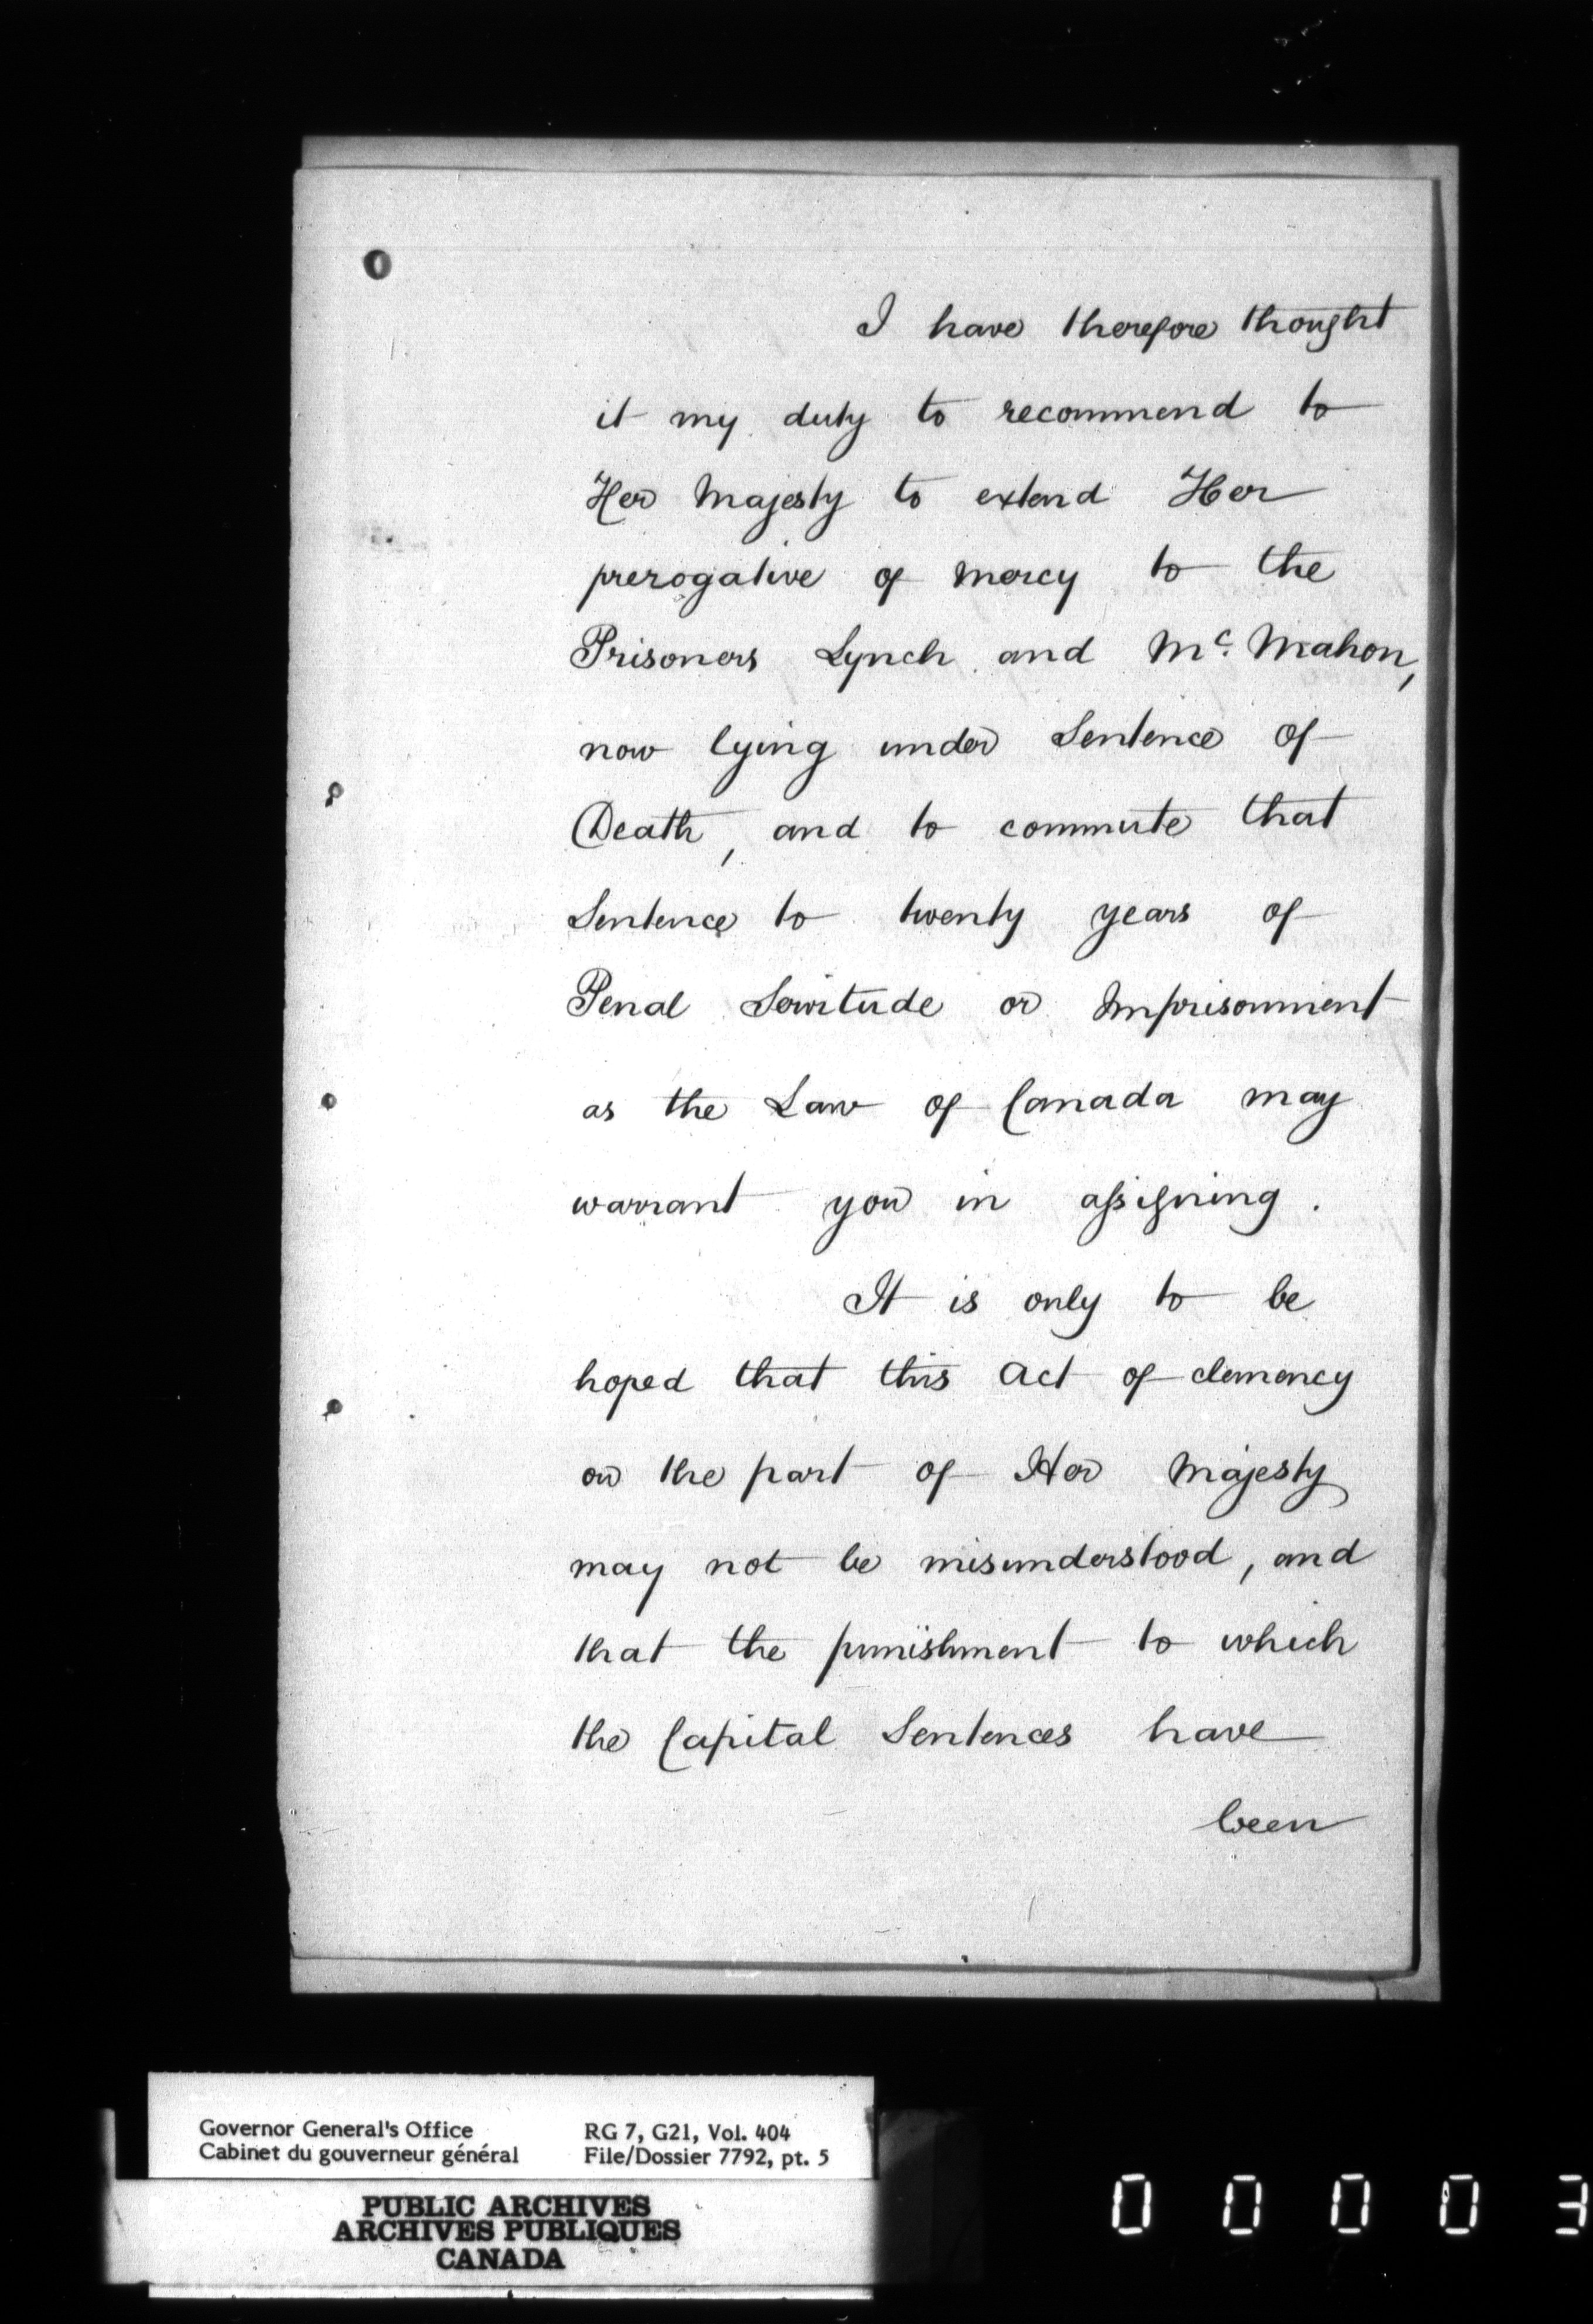 I have therefore thought
it my duty to recommend to
Her Majesty to extend Her
prerogative of mercy to the
Prisoners Lynch and Mc. Mahon,
now lying under Sentence of
Death, and to commute that
Sentence to twenty years of
Penal Servitude or Imprisonment
as the Law of Canada may
warrant you in assigning.
It is only to be
hoped that this Act of clemency
on the part of Her Majesty
may not be misunderstood, and
that the punishment to which
the Capital Sentences have
been
Governor General's Office
Cabinet du gouverneur général
RG 7, G21, Vol. 404
File/Dossier 7792, pt. 5
PUBLIC ARCHIVES
ARCHIVES PUBLIQUES
CANADA
0 0 0 0 3